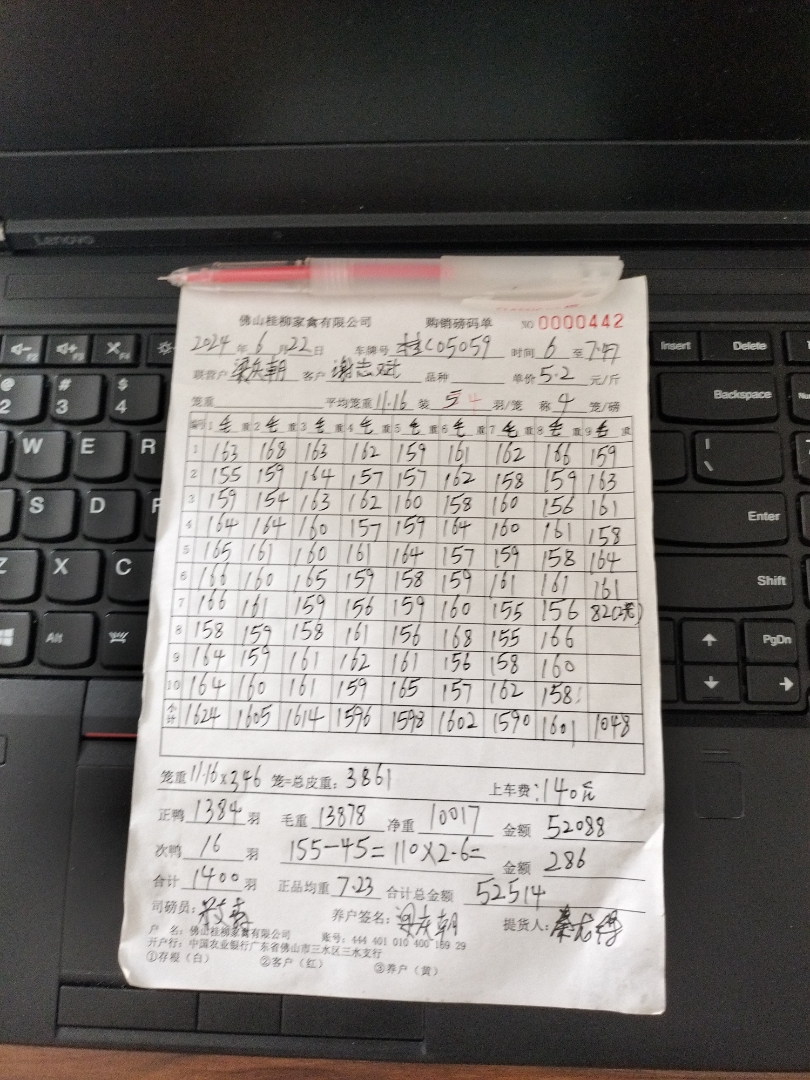 Lenovo
佛山桂柳家禽有限公司 购销磅码单 NO 0000442
2024年6月22日 车牌号 桂C05059 时间 6 至 7:47
联营户 梁庆朝 客户 谢志斌 品种 单价 5.2 元/斤
笼重 平均笼重 11.16 装 4 羽/笼 称 4 笼/磅
编号 1 毛 重 2 毛 重 3 毛 重 4 毛 重 5 毛 重 6 毛 重 7 毛 重 8 毛 重 9 毛 重
1 163 168 163 162 159 161 162 166 159
2 155 159 164 157 157 162 158 159 163
3 159 154 163 162 160 158 160 156 161
4 164 164 160 157 159 164 160 161 158
5 165 161 160 161 164 157 159 158 164
6 166 160 165 159 158 159 161 161 161
7 166 161 159 156 159 160 155 156 82(2笼)
8 158 159 158 161 156 168 155 166
9 164 159 161 162 161 156 158 160
10 164 160 161 159 165 157 162 158
小计 1624 1605 1614 1596 1598 1602 1590 1601 1048
笼重 11.16×346 笼=总皮重: 3861 上车费: 140元
正鸭 1384 羽 毛重 13878 净重 10017 金额 52088
次鸭 16 羽 155-45=110×2.6= 金额 286
合计 1400 羽 正品均重 7.23 合计总金额 52514
司磅员: 养户签名: 梁庆朝 提货人:
户 名: 佛山桂柳家禽有限公司 账号: 444 401 010 400 169 29
开户行: 中国农业银行广东省佛山市三水区三水支行
①存根（白） ②客户（红） ③养户（黄）
Insert Delete
Backspace
Enter
Shift
PgDn
Alt
@ 2 # 3 $ 4
W E R
S D F
Z X C